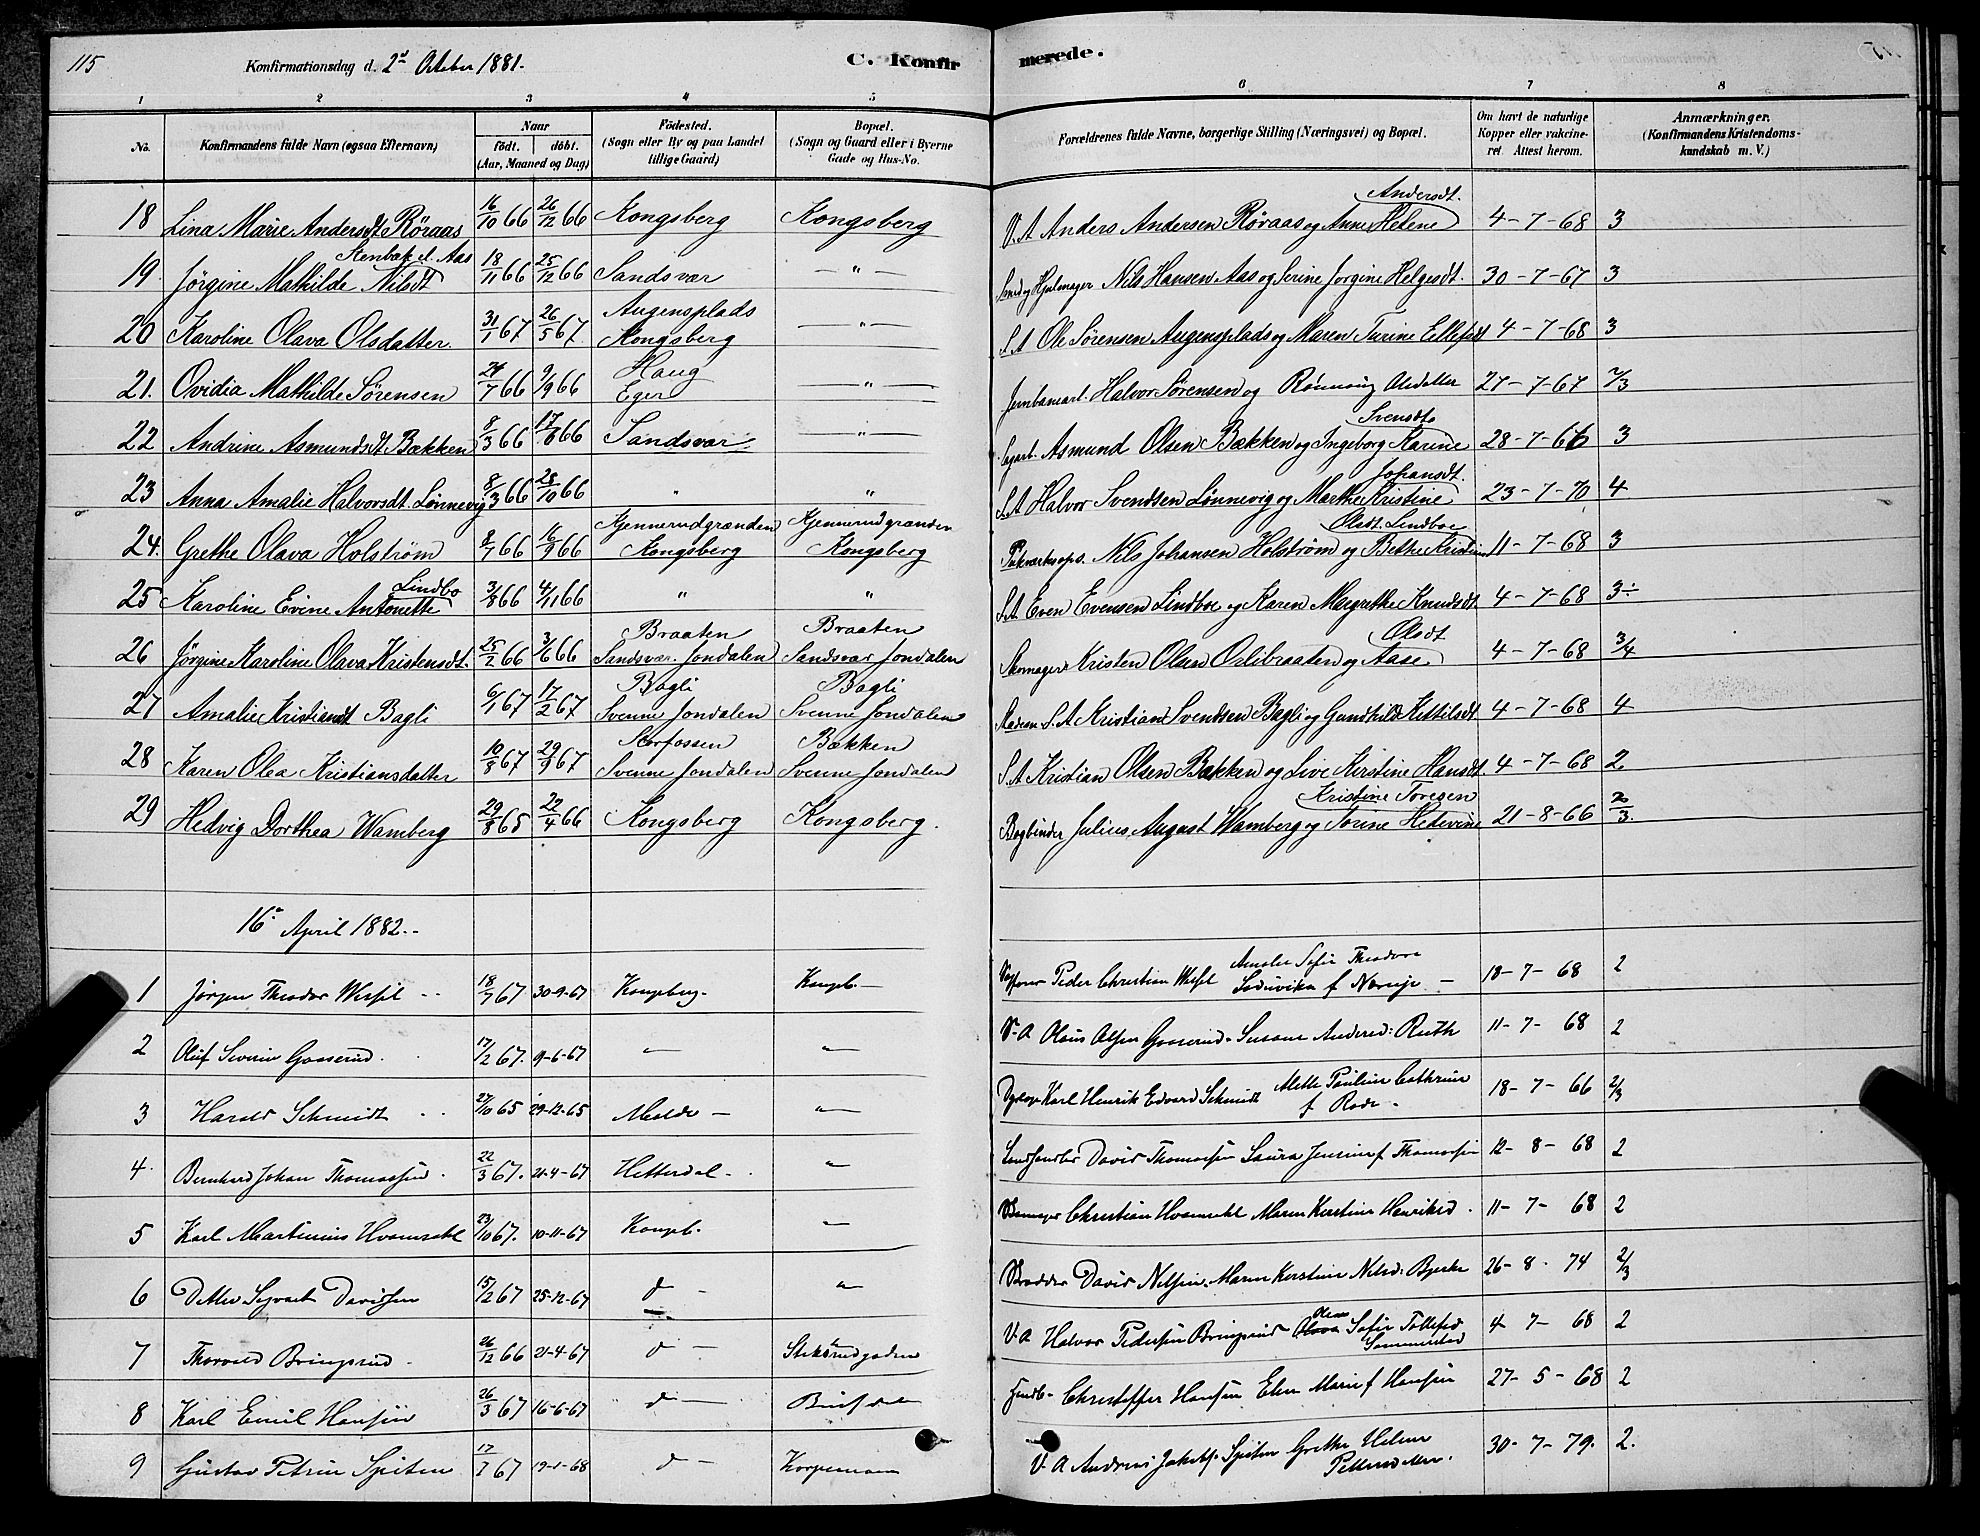 115
Konfirmationsdag d. 2d October 1881.
C. Konfirmerede.
1 2 3 4 5 6 7 8
No.
Konfirmandens fulde Navn (ogsaa Efternavn)
Naar
født. døbt.
(Aar, Maaned og Dag)
Fødested.
(Sogn eller By og paa Landet
tillige Gaard)
Bopæl.
(Sogn og Gaard eller i Byerne
Gade og Hus-No.
Forældrenes fulde Navne, borgerlige Stilling (Næringsvei) og Bopæl.
Om havt de naturlige
Kopper eller vakcine-
ret. Attest herom.
Anmærkninger.
(Konfirmandens Kristendoms-
kundskab m. V.)
Andersdt.
18 Lina Marie Andersdt Röraas 16/10 66 26/12 66 Kongsberg Kongsberg V. A Anders Andersen Röraas og Anne Helene 4-7-68 3
Stenbæk el. Aas
19 Jørgine Mathilde Nilsdt 18/11 66 25/12 66 Sandsvær — " — Smed og Hjulmager Nils Hansen Aas og Serine Jørgine Helgesdt. 30-7-67 3
Augensplads
20 Karoline Olava Olsdatter 31/1 67 26/5 67 Kongsberg — " — S. A Ole Sörensen Augensplads og Maren Turine Ellefsdt 4-7-68 3
Haug
21. Ovidia Mathilde Sørensen 24/7 66 9/9 66 Eger — " — Jernbanearb. Halvor Sörensen og Rönnaug Olsdatter 27-7-67 2/3
Svensdt
22 Andrine Asmundsdt Bækken 8/3 66 17/8 66 Sandsvær — " — Sagarb. Asmund Olsen Bækken og Ingeborg Karine 28-7-66 3
Johansdt.
23 Anna Amalie Halvorsdt. Lønnevig 8/3 66 28/10 66 " " S. A Halvor Svendsen Lønnevig og Marthe Kristine 23-7-70 4
Kjennerudgrænden Kjennerudgrænden Olsdt. Lindboe
24. Grethe Olava Holstrøm 8/7 66 16/9 66 Kongsberg Kongsberg Pukværksops. Nils Johansen Holstrøm og Bethe Kristine 11-7-68 3
Lindbo
25 Karoline Evine Antonette 3/8 66 4/11 66 " " S. A Even Evensen Lindboe og Karen Margrethe Knudsdt. 4-7-68 3÷
Braaten Braaten Olsdt
26 Jørgine Karoline Olava Kristensdt. 25/2 66 3/6 66 Sandsvær. Jondalen Sandsvær Jondalen Skomager Kristen Olsen Oslebraaten og Aase 4-7-68 3/4
Bagli Bagli
27 Amalie Kristiansdt Bagli 6/1 67 17/2 67 Svenne Jondalen Svenne Jondalen S. A Kristian Svendsen Bagli og Gunhild Kittilsdt 4-7-68 4
Korfossen Bækken
28 Karen Olea Kristiansdatter 10/8 67 29/9 67 Svenne Jondalen Svenne Jondalen S. A Kristian Olsen Bækken og Live Kirstine Hansdt 4-7-68 2
Kristine Toresen
29 Hedvig Dorthea Wamberg 29/8 65 22/4 66 Kongsberg Kongsberg. Bogbinder Julius August Wamberg og Torine Hedevine 21-8-66 2/3
16de April 1882.
Amalie Sofie Theodora
1 Jørgen Theodor Wessel 18/7 67 30-9-67 Kongsberg. Kongsb. Peder Christian Wessel Lovisa f Norrije 18-7-68 2
2 Oluf Severin Gooserud 17/2 67. 9-6-67 — " — V. A Olaus Olsen Gooserud Susane Andersd. Ruth 11-7-68 2
Mette Pauline Cathrine
3 Harald Schmidt 27/10 65 29-12-65 Molde — " Karl Henrik Edvard Schmidt f Rode 18-7-66 2/3
4. Bernhard Johan Thomassen 22/3 67. 21-4-67 Hitterdal " Landhandler David Thomassen Laura Jensine f Thomassen 12-8-68 2
5 Karl Martinius Hvamsahl 23/10 67. 10-11-67 Kongsb. " Christian Hvamsahl Maren Kirstine Henriksd. 11-7-68 2
6 Ditlev Sigvart Davidsen 15/2 67 25-12-67 d — " David Nilsen Maren Kirstine Nilsd. Bjerke 26-8-74 2/3
Olea
7 Thorvald Bringsrud 26/12 66 21-4-67 d — V. A Halvor Pedersen Bringsrud Olava Sofie Tollefsd 4-7-68 2
8 Karl Emil Hansen 26/3 67 16-6-67 d — Christoffer Hansen Elen Marie f Hansen 27-5-68 2
9 Gustav Petrin Spiten 17/7 67 19-1-68 d — Korpemoen V. A Andreas Jakobs. Spiten Grethe Helene 30-7-79. 2.
Pettersdatter.